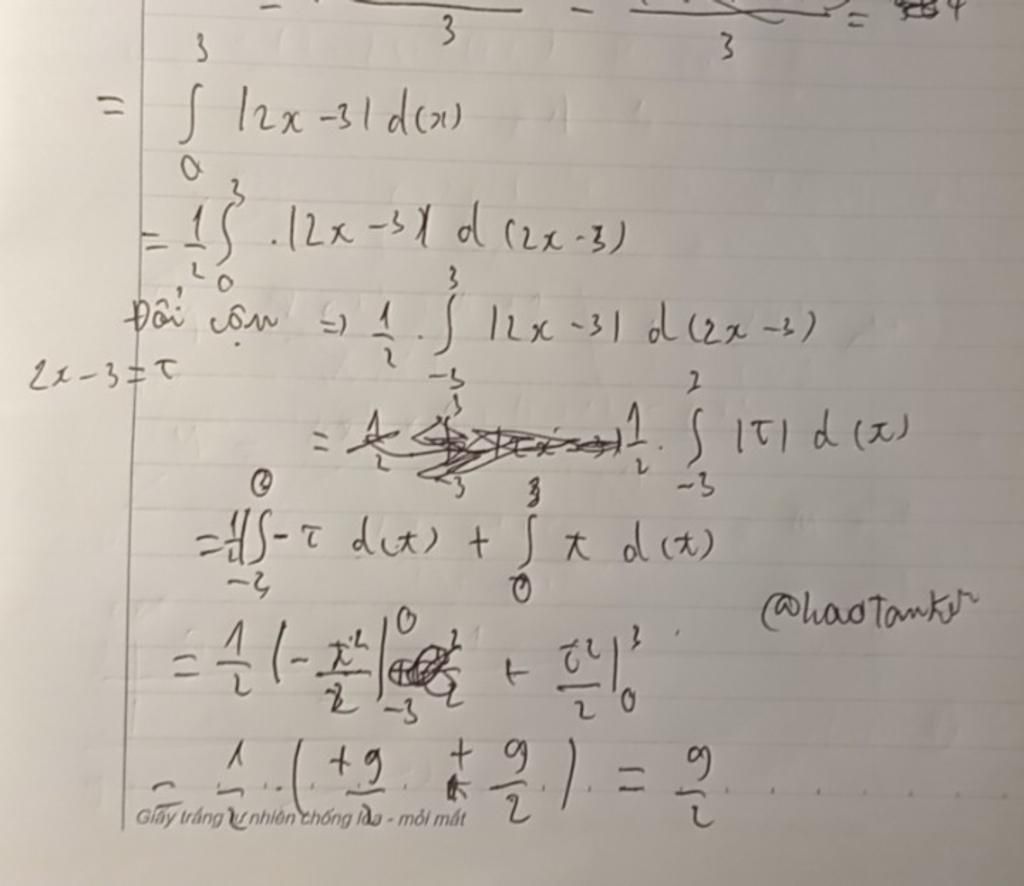 3 3 = 4
= ∫₀³ |2x - 3| d(x)
= 1/2 ∫₀³ . |2x - 3| d(2x - 3)
Đổi cận => 1/2 . ∫₋₃³ |2x - 3| d(2x - 3)
2x - 3 = t
= 1/2 . ∫₋₃³ |t| d(t)
= 1/2 (∫₋₃⁰ - t d(t) + ∫₀³ t d(t)
@haoTanker
= 1/2 (- t²/2 |₋₃⁰ + t²/2 |₀³
= 1/2 . (+9/2 + 9/2) = 9/2
Giấy trắng tự nhiên chống lóa - mỏi mắt